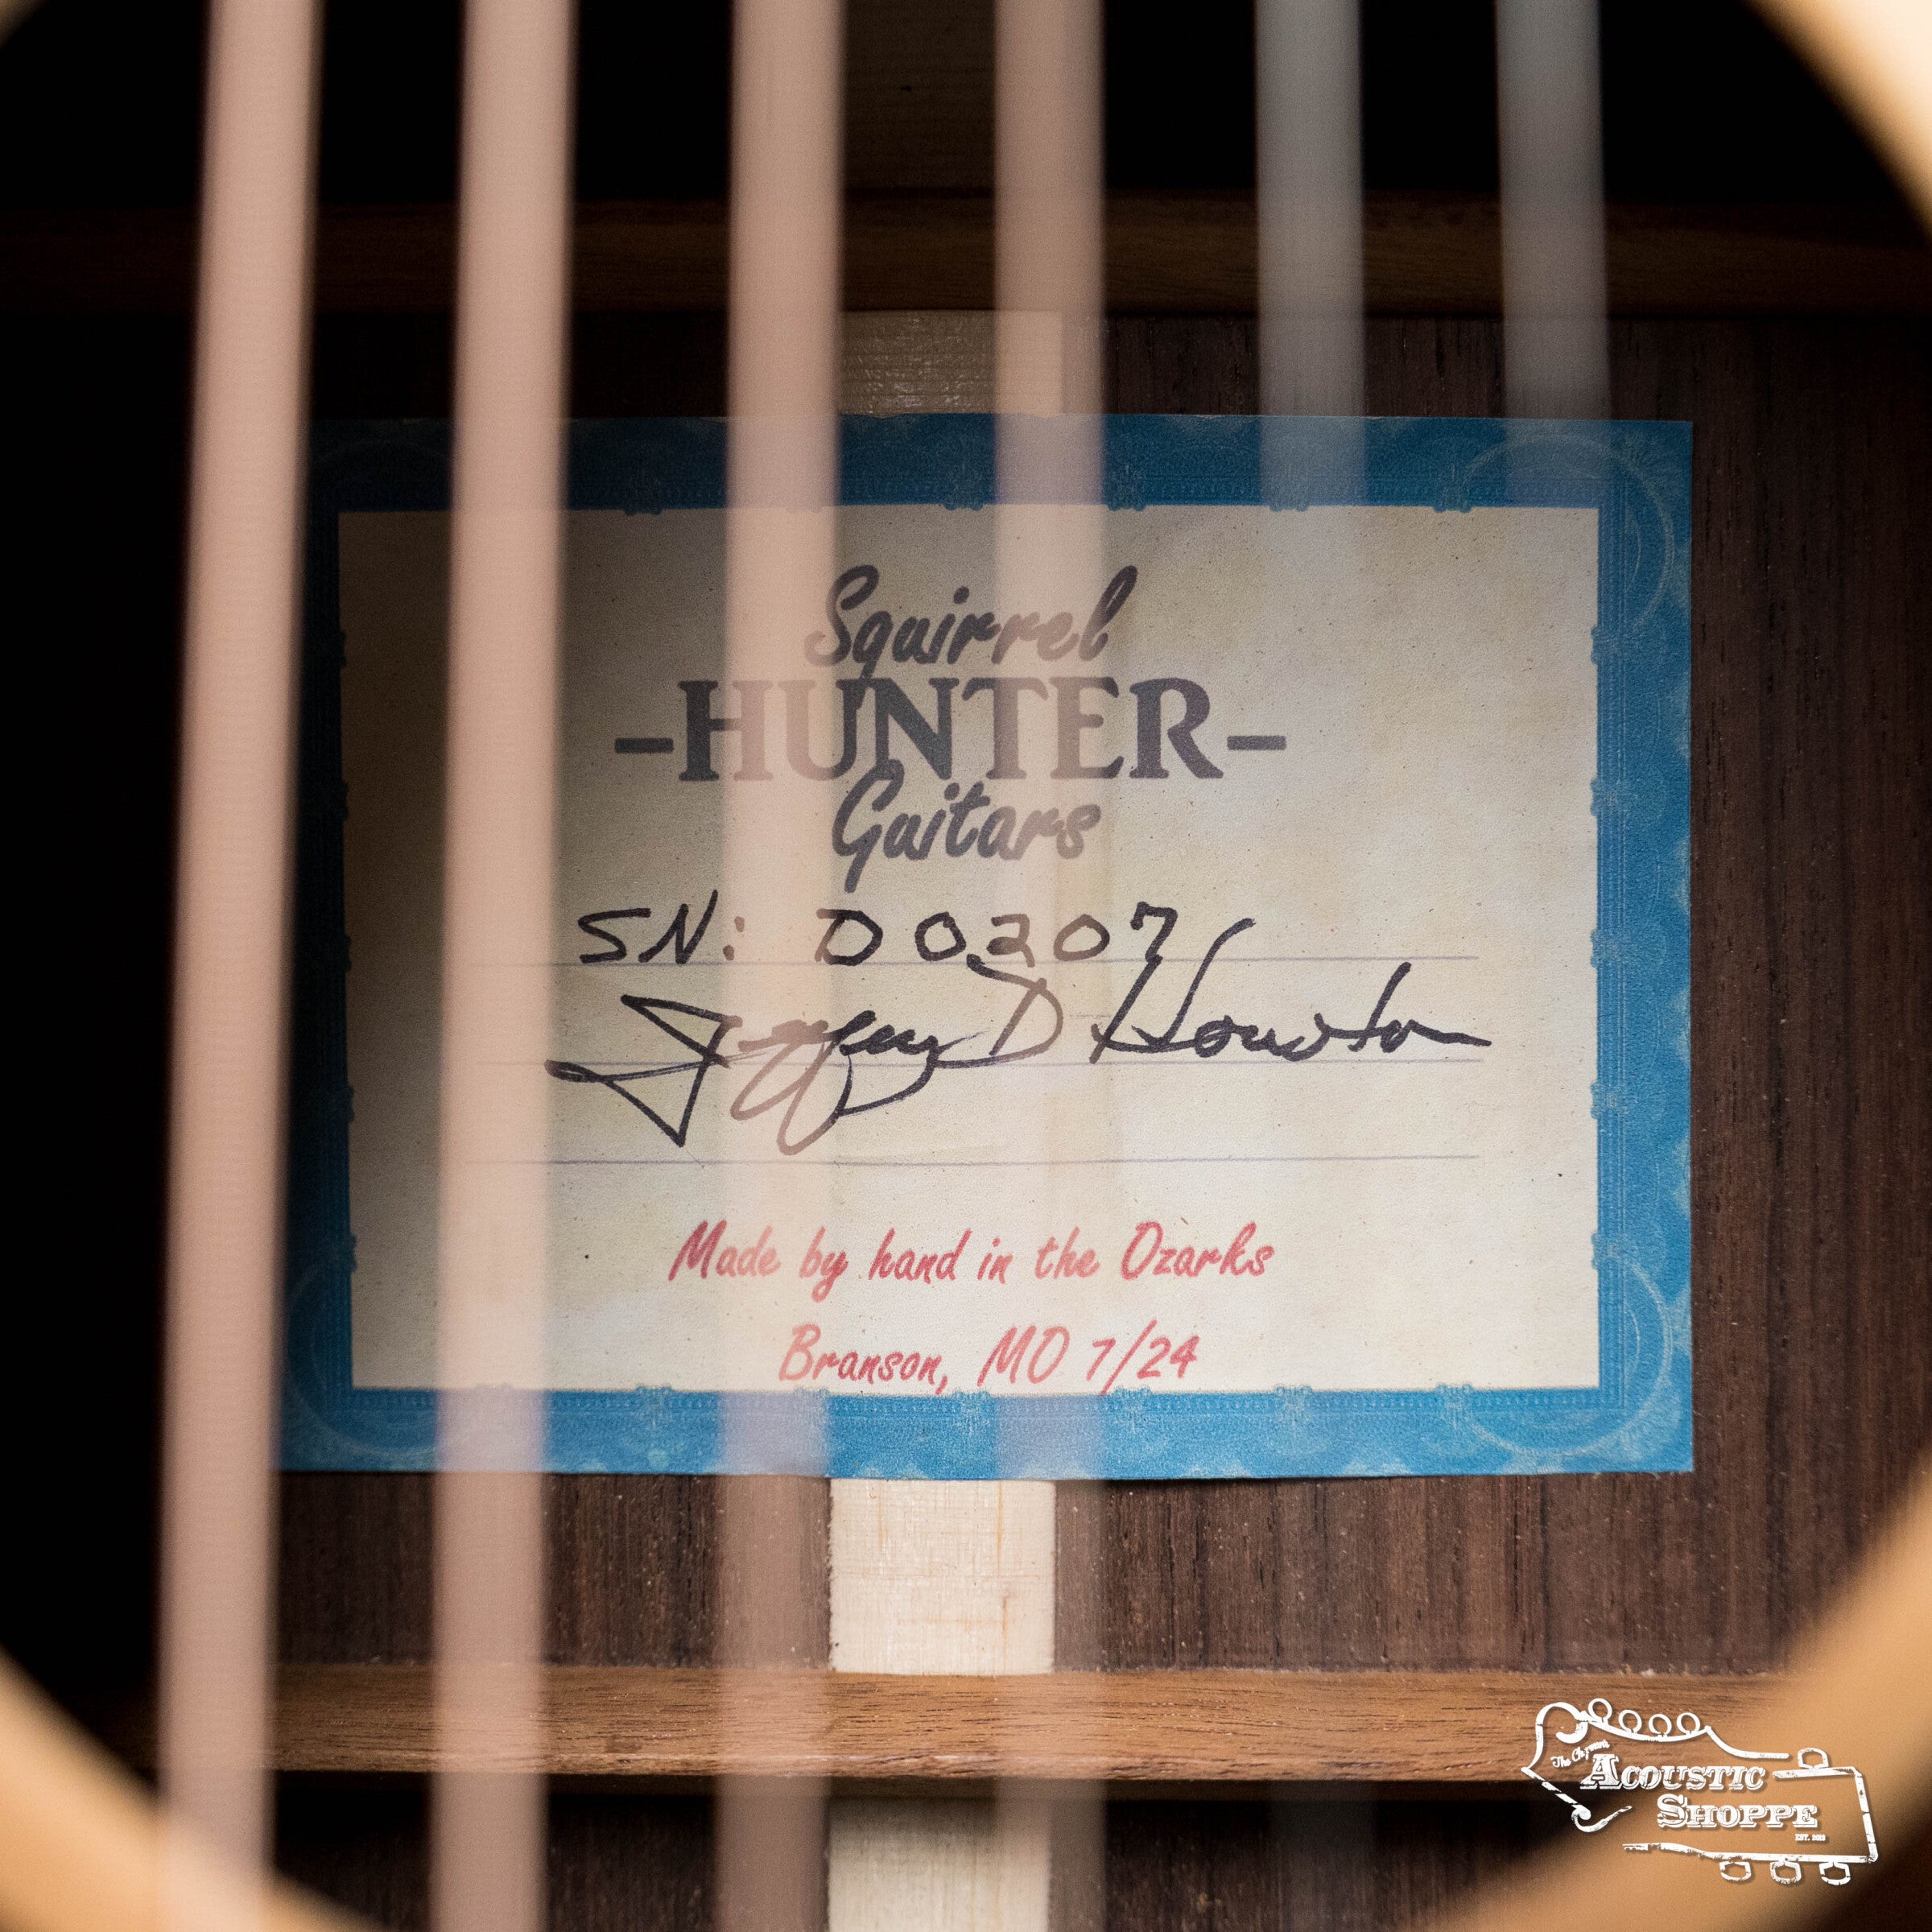 Squirrel
-HUNTER-
Guitars
SN: D0207
Jeffrey D Houston
Made by hand in the Ozarks
Branson, MO 7/24
The
Acoustic
Shoppe
EST. 2012